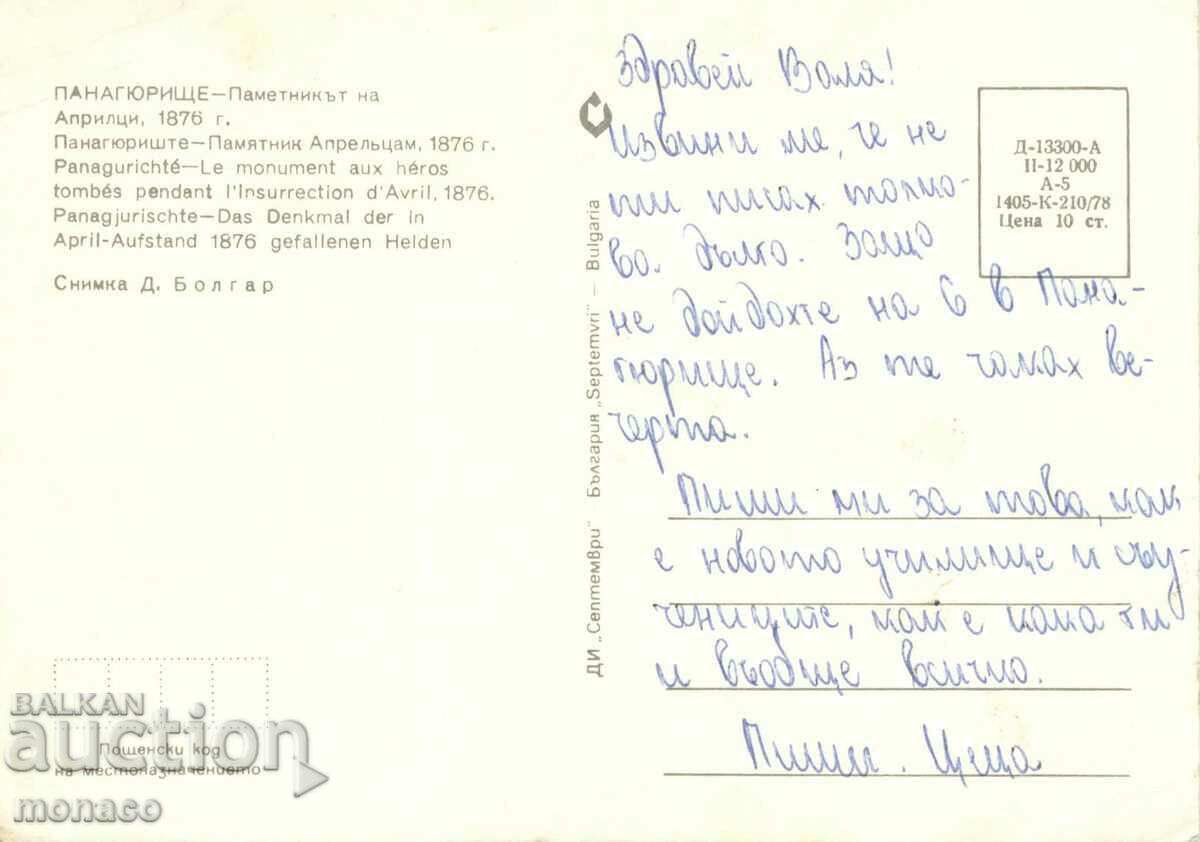 ПАНАГЮРИЩЕ—Паметникът на
Априлци, 1876 г.
Панагюриште—Памятник Апрельцам, 1876 г.
Panagurichté—Le monument aux héros
tombés pendant l'Insurrection d'Avril, 1876.
Panagjurischte—Das Denkmal der in
April-Aufstand 1876 gefallenen Helden
Снимка Д. Болгар
Пощенски код
на местоназначението
ДИ „Септември" — България „Septemvri" — Bulgaria
Здравей Валя!
Извини ме, че не
ти писах толко-
ва дълго. Защо
не дойдохте на 6 в Пана-
гюрище. Аз те чаках ве-
черта.
Пиши ми за това, как
е новото училище и съу-
чениците, как е кака ти
и въобще всичко.
Пиши. Цеца
Д-13300-А
II-12 000
А-5
1405-К-210/78
Цена 10 ст.
BALKAN
auction
monaco